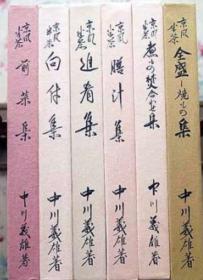 京風料理
前菜集
中川義雄著
京風料理
向付集
中川義雄著
京風料理
進肴集
中川義雄著
京風料理
膳汁集
中川義雄著
京風料理
煮もの焚合わせ集
中川義雄著
京風料理
全盛・焼もの集
中川義雄著